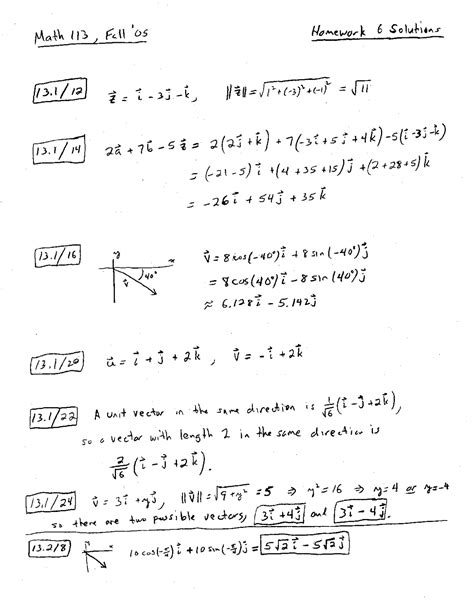 Math 113, Fall '05 Homework 6 Solutions
13.1/12 z⃗ = i⃗ - 3j⃗ - k⃗, ||z⃗|| = √(1² + (-3)² + (-1)²) = √11
13.1/14 2a⃗ + 7b⃗ - 5z⃗ = 2(2j⃗ + k⃗) + 7(-3i⃗ + 5j⃗ + 4k⃗) - 5(i⃗ - 3j⃗ - k⃗)
= (-21 - 5)i⃗ + (4 + 35 + 15)j⃗ + (2 + 28 + 5)k⃗
= -26i⃗ + 54j⃗ + 35k⃗
13.1/16 y x 40° v⃗ = 8cos(-40°)i⃗ + 8sin(-40°)j⃗
= 8cos(40°)i⃗ - 8sin(40°)j⃗
≈ 6.128i⃗ - 5.142j⃗
13.1/20 u⃗ = i⃗ + j⃗ + 2k⃗, v⃗ = -i⃗ + 2k⃗
13.1/22 A unit vector in the same direction is 1/√6 (i⃗ - j⃗ + 2k⃗),
so a vector with length 2 in the same direction is
2/√6 (i⃗ - j⃗ + 2k⃗).
13.1/24 v⃗ = 3i⃗ + yj⃗, ||v⃗|| = √(9 + y²) = 5 ⇒ y² = 16 ⇒ y = 4 or y = -4
so there are two possible vectors, 3i⃗ + 4j⃗ and 3i⃗ - 4j⃗.
13.2/8 10cos(-π/4)i⃗ + 10sin(-π/4)j⃗ = 5√2i⃗ - 5√2j⃗